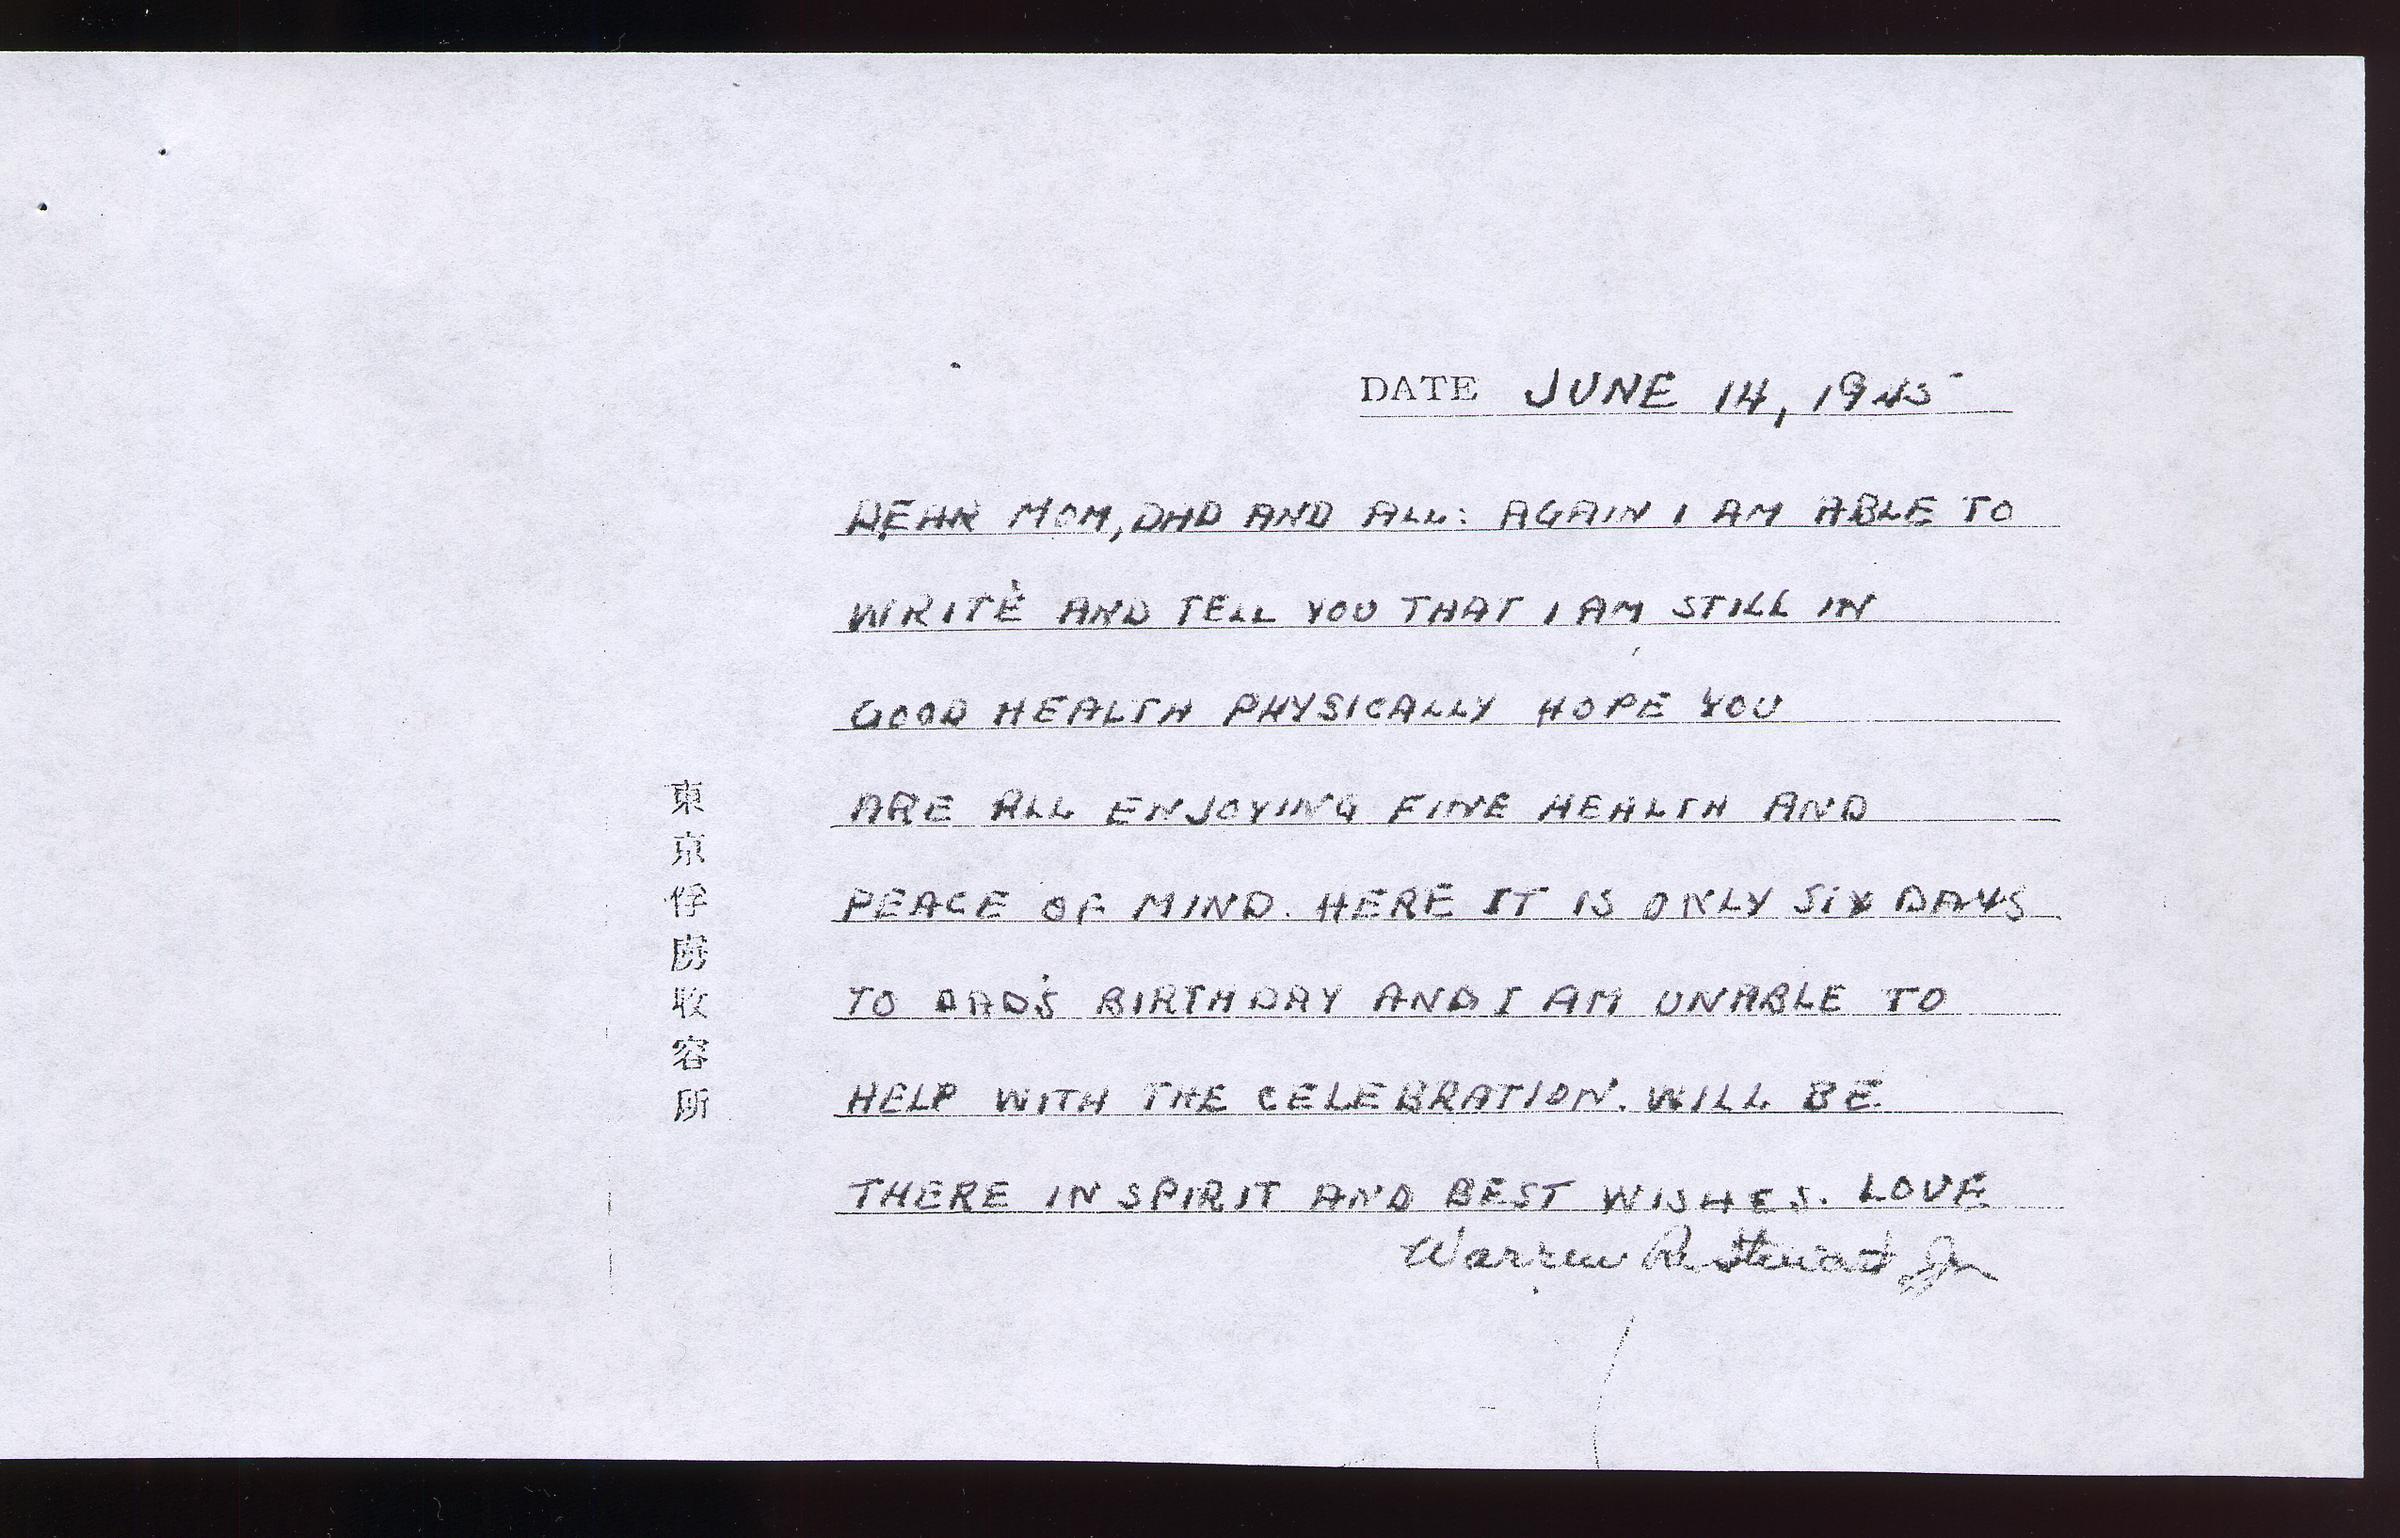 DATE JUNE 14, 1945
DEAR MOM, DAD AND ALL: AGAIN I AM ABLE TO
WRITE AND TELL YOU THAT I AM STILL IN
GOOD HEALTH PHYSICALLY HOPE YOU
ARE ALL ENJOYING FINE HEALTH AND
PEACE OF MIND. HERE IT IS ONLY SIX DAYS
TO DAD'S BIRTHDAY AND I AM UNABLE TO
HELP WITH THE CELEBRATION. WILL BE
THERE IN SPIRIT AND BEST WISHES. LOVE
Warren R. Stewart Jr
東京俘虜收容所